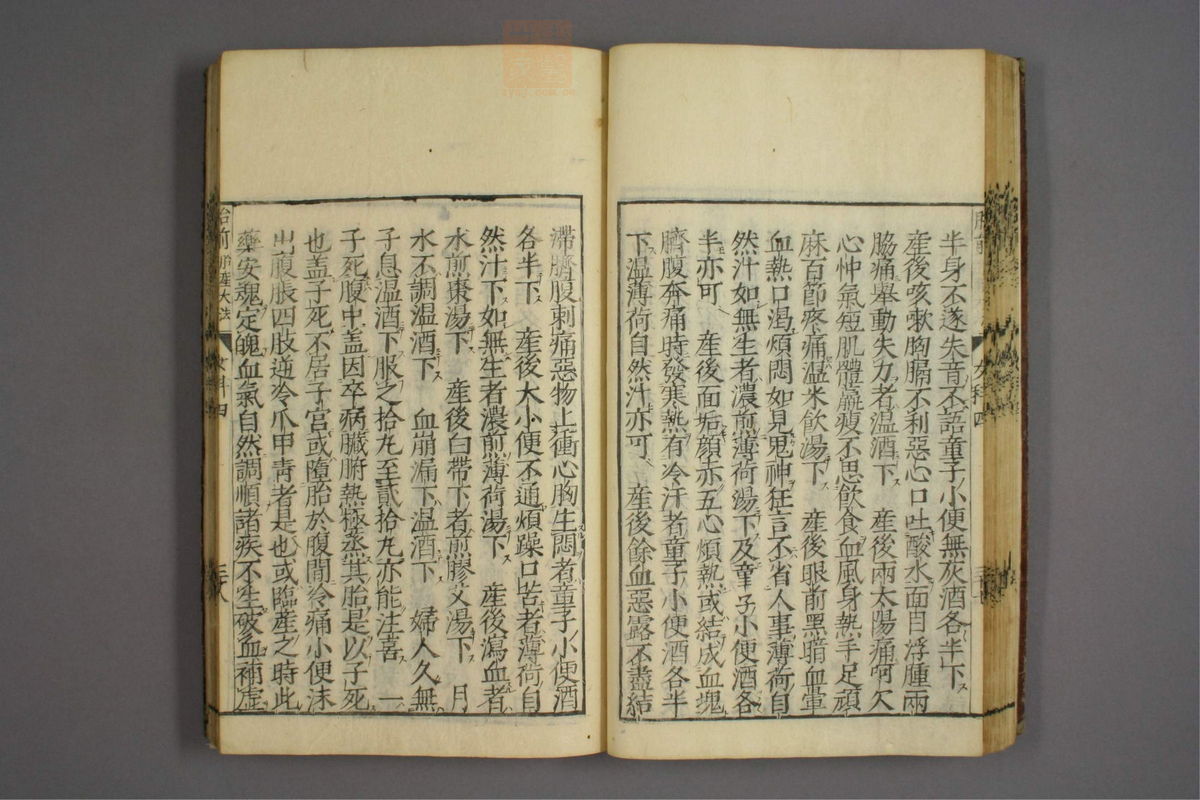 半身不遂失音不語童子小便無灰酒各半下
産後咳嗽胸膈不利惡心口吐酸水面目浮腫兩
脇痛舉動失力者温酒下　産後兩太陽痛呵欠
心忡氣短肌體羸瘦不思飲食血風身熱手足頑
麻百節疼痛温米飲湯下　産後眼前黑暗血暈
血熱口渴煩悶如見鬼神狂言不省人事薄荷自
然汁如無生者濃煎薄荷湯下及童子小便酒各
半亦可　産後面垢顔赤五心煩熱或結成血塊
臍腹奔痛時發寒熱有冷汗者童子小便酒各半
下温薄荷自然汁亦可　産後餘血惡露不盡結
滯臍腹刺痛惡物上衝心胸生悶者童子小便酒
各半下　産後大小便不通煩躁口苦者薄荷自
然汁下如無生者濃煎薄荷湯下　産後瀉血者
水煎棗湯下　産後白帶下者煎膠艾湯下　月
水不調温酒下　血崩漏下温酒下　婦人久無
子息温酒下服之拾丸至貳拾丸亦能注喜　一
子死腹中盖因卒病臟腑熱極蒸其胎是以子死
也盖子死不居子宮或墮胎於腹間冷痛小便沫
出腹脹四肢逆冷爪甲青者是也或臨産之時此
藥安魂定魄血氣自然調順諸疾不生破血補虛
胎前
女科四
胎前
産大法
女科四
三十八